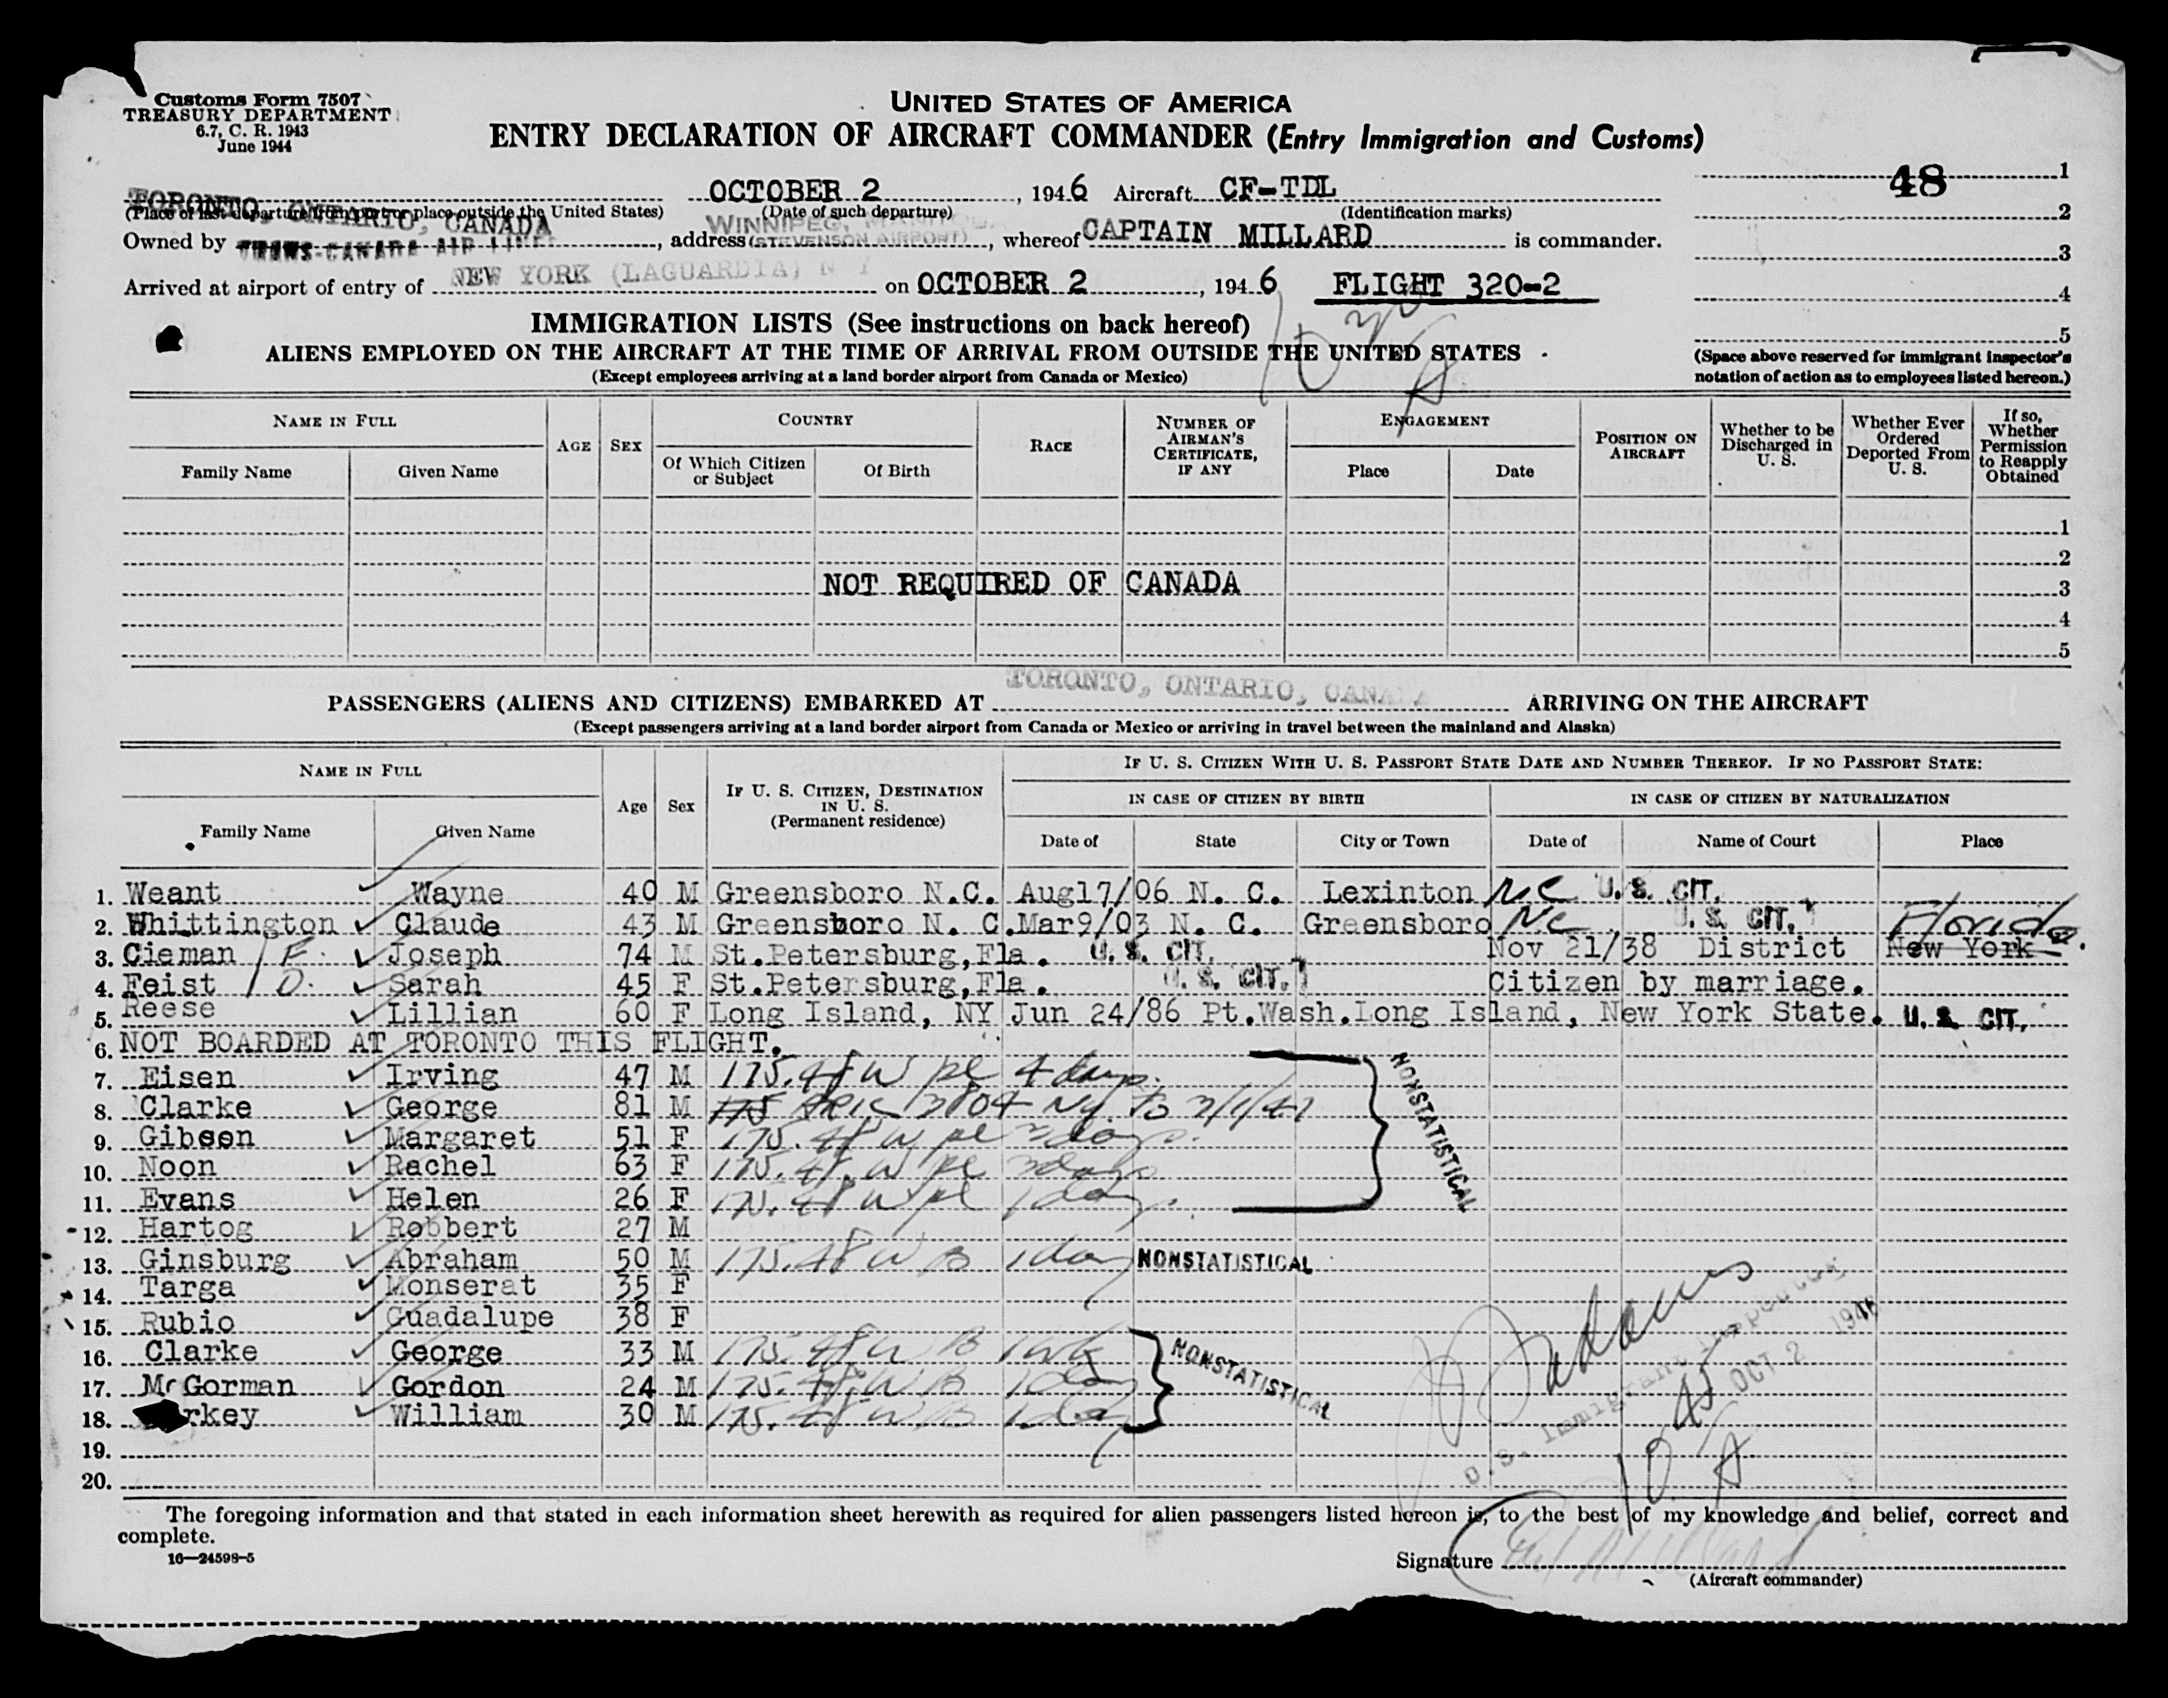 Customs Form 7507
TREASURY DEPARTMENT
6.7, C. R. 1943
June 1944
UNITED STATES OF AMERICA
ENTRY DECLARATION OF AIRCRAFT COMMANDER (Entry Immigration and Customs)
48 1
TORONTO, ONTARIO, CANADA OCTOBER 2, 1946 Aircraft CF-TDL
(Place of last departure from port or place outside the United States) (Date of such departure) (Identification marks)
2
Owned by TRANS-CANADA AIR LINES, address WINNIPEG, (STEVENSON AIRPORT), whereof CAPTAIN MILLARD is commander.
3
Arrived at airport of entry of NEW YORK (LAGUARDIA) N Y on OCTOBER 2, 1946 FLIGHT 320-2
4
5
IMMIGRATION LISTS (See instructions on back hereof)
ALIENS EMPLOYED ON THE AIRCRAFT AT THE TIME OF ARRIVAL FROM OUTSIDE THE UNITED STATES
(Except employees arriving at a land border airport from Canada or Mexico)
(Space above reserved for immigrant inspector's
notation of action as to employees listed hereon.)
NAME IN FULL AGE SEX COUNTRY RACE NUMBER OF AIRMAN'S CERTIFICATE, IF ANY ENGAGEMENT POSITION ON AIRCRAFT Whether to be Discharged in U. S. Whether Ever Ordered Deported From U. S. If so, Whether Permission to Reapply Obtained
Family Name Given Name Of Which Citizen or Subject Of Birth Place Date
1
2
NOT REQUIRED OF CANADA 3
4
5
PASSENGERS (ALIENS AND CITIZENS) EMBARKED AT TORONTO, ONTARIO, CANADA ARRIVING ON THE AIRCRAFT
(Except passengers arriving at a land border airport from Canada or Mexico or arriving in travel between the mainland and Alaska)
NAME IN FULL Age Sex IF U. S. CITIZEN, DESTINATION IN U. S. (Permanent residence) IF U. S. CITIZEN WITH U. S. PASSPORT STATE DATE AND NUMBER THEREOF. IF NO PASSPORT STATE:
IN CASE OF CITIZEN BY BIRTH IN CASE OF CITIZEN BY NATURALIZATION
Family Name Given Name Date of State City or Town Date of Name of Court Place
1. Weant Wayne 40 M Greensboro N.C. Aug17/06 N. C. Lexinton NC U. S. CIT.
2. Whittington Claude 43 M Greensboro N. C. Mar9/03 N. C. Greensboro NC U. S. CIT. Florida.
3. Cieman F. Joseph 74 M St.Petersburg,Fla. U. S. CIT. Nov 21/38 District New York
4. Feist D. Sarah 45 F St.Petersburg,Fla. U. S. CIT. Citizen by marriage.
5. Reese Lillian 60 F Long Island, NY Jun 24/86 Pt.Wash.Long Island, New York State. U. S. CIT.
6. NOT BOARDED AT TORONTO THIS FLIGHT.
7. Eisen Irving 47 M 175.48 W pl 4 days.
8. Clarke George 81 M 175
9. Gibson Margaret 51 F 175.48 W pl
10. Noon Rachel 63 F 175.48 W pl
11. Evans Helen 26 F 175.48 W pl 1 day.
NONSTATISTICAL
12. Hartog Robbert 27 M
13. Ginsburg Abraham 50 M 175.48 W B 1 day NONSTATISTICAL
14. Targa Monserat 35 F
15. Rubio Guadalupe 38 F
16. Clarke George 33 M 175.48 W B 1 wk
17. McGorman Gordon 24 M 175.48 W B 1 day
18. rkey William 30 M 175.48 W B 1 day
NONSTATISTICAL
19.
20.
U.S. Immigrant Inspector
OCT 2 1946
The foregoing information and that stated in each information sheet herewith as required for alien passengers listed hereon is, to the best of my knowledge and belief, correct and
complete.
16—24598-5
Signature
(Aircraft commander)